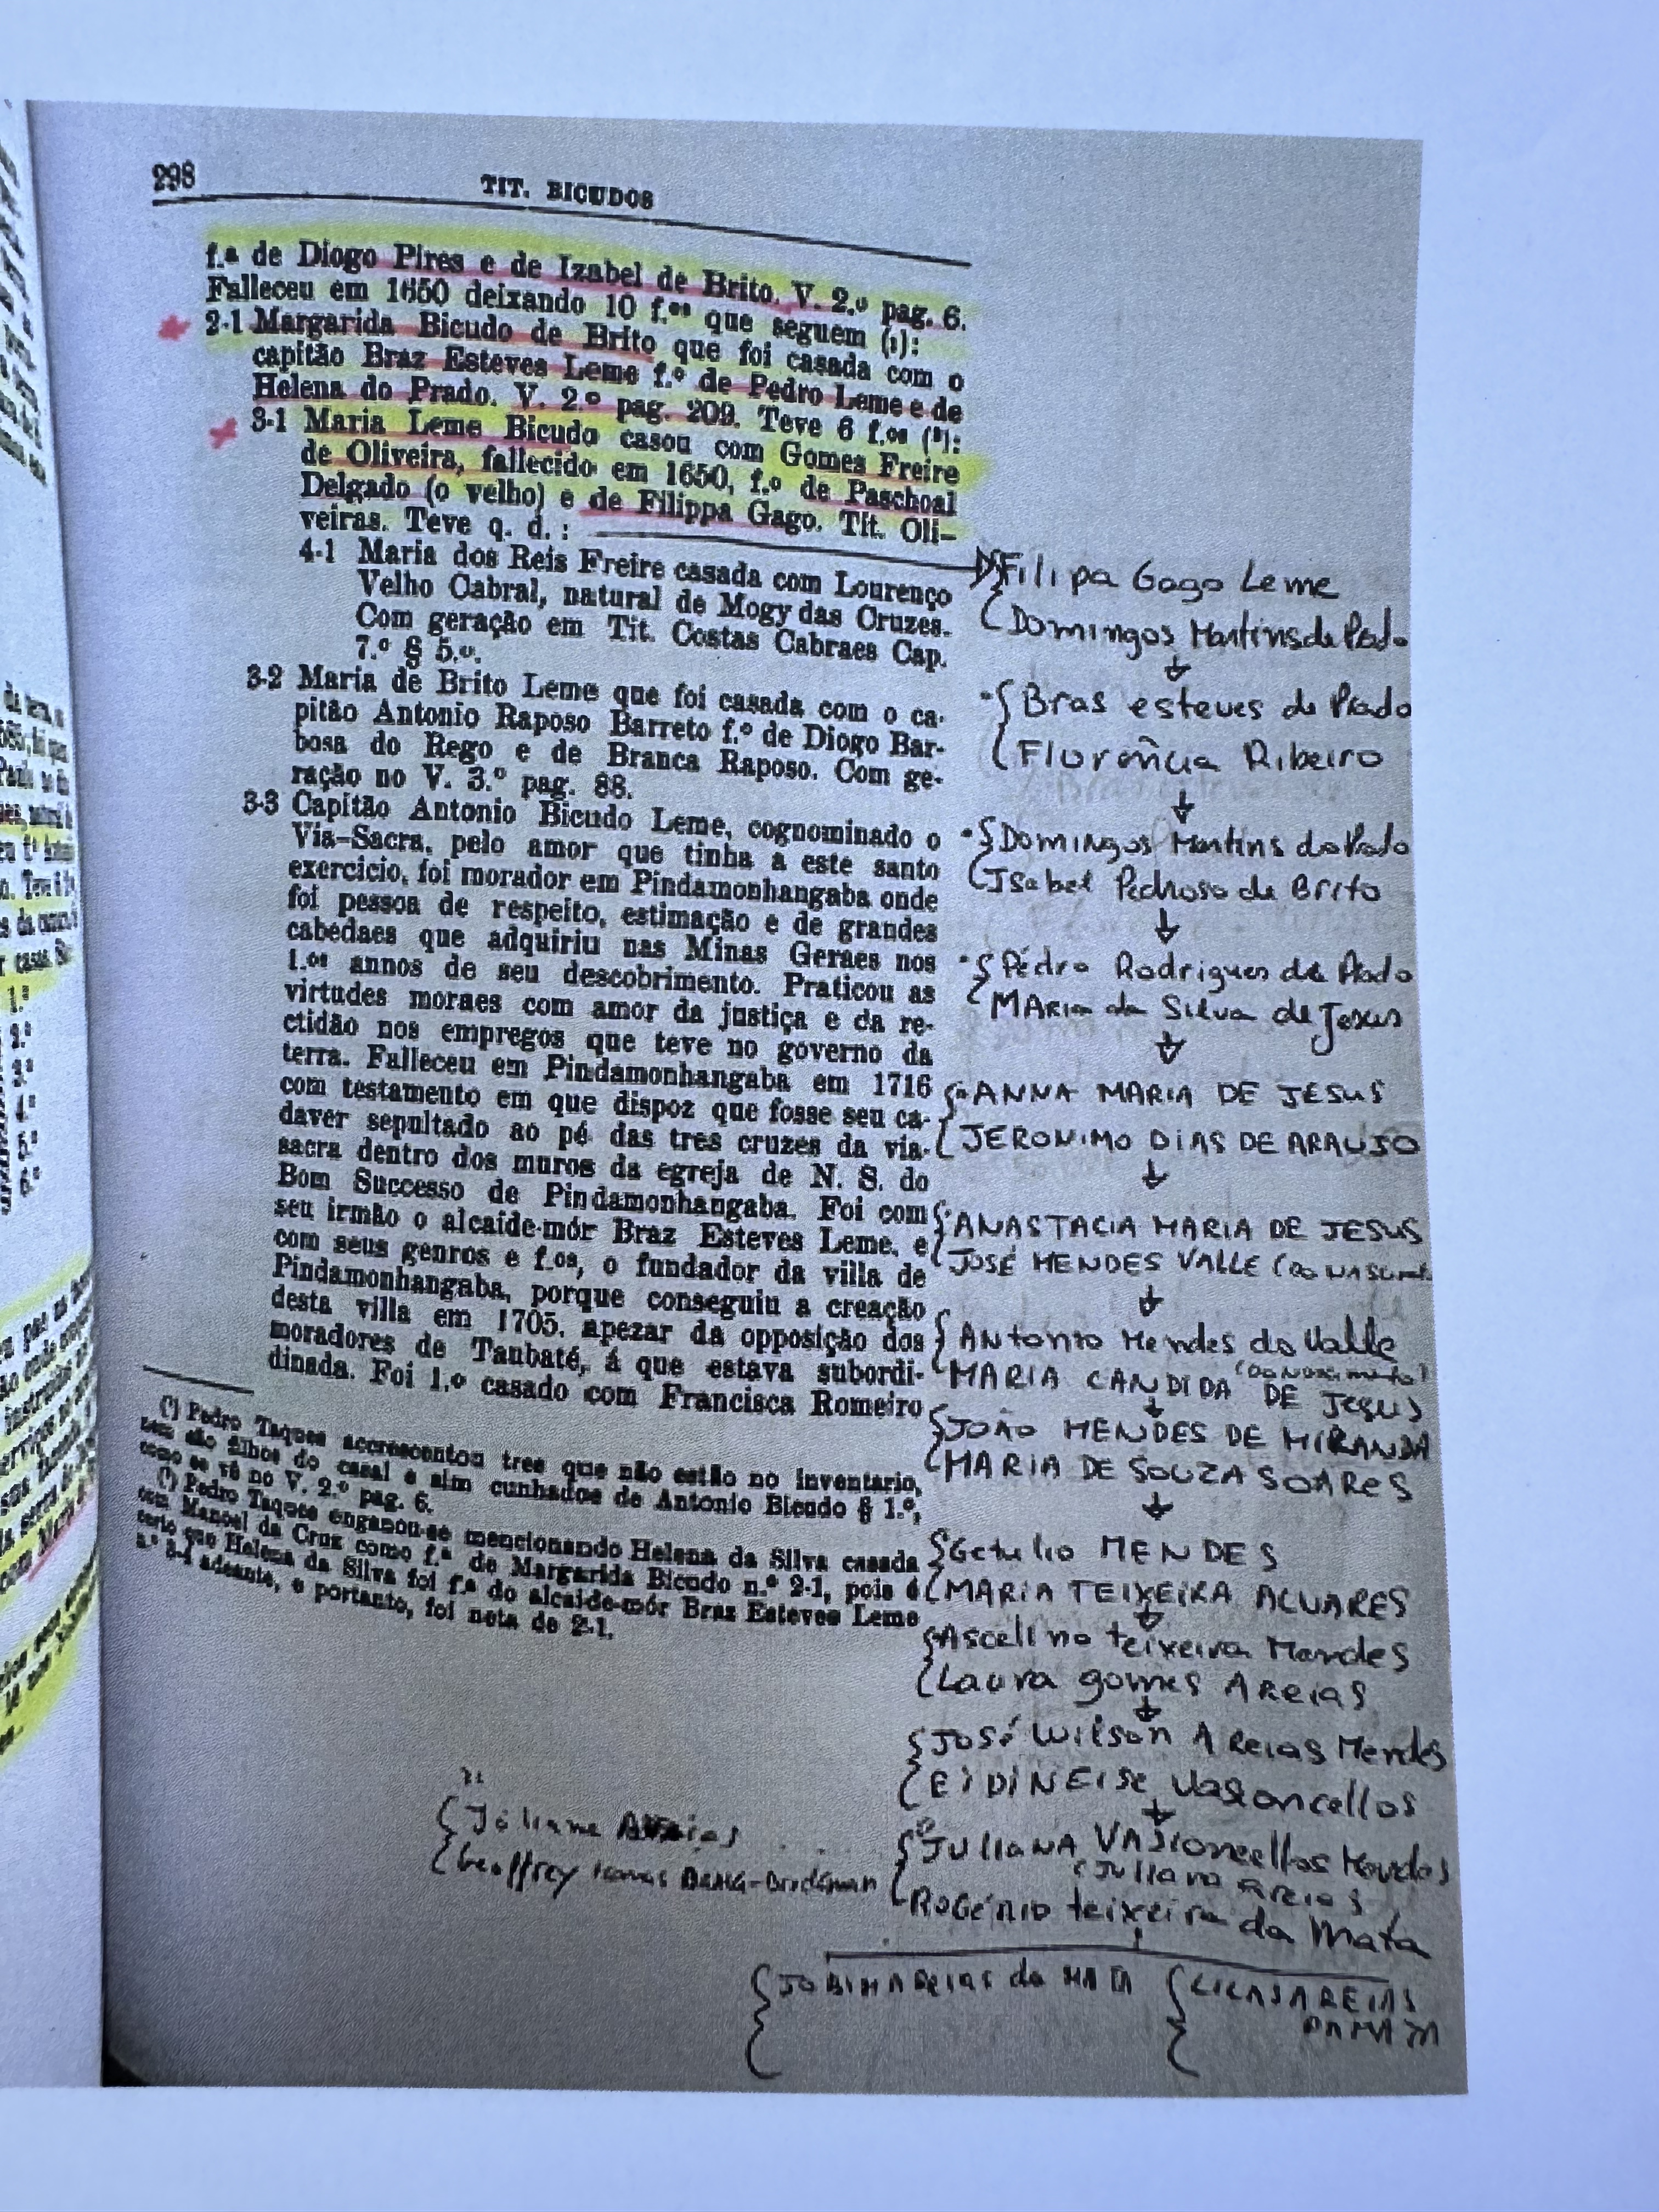 298
TIT. BICUDOS
f.ª de Diogo Pires e de Izabel de Brito. V. 2.º pag. 6.
Falleceu em 1650 deixando 10 f.ºˢ que seguem (¹):
2-1 Margarida Bicudo de Brito que foi casada com o
capitão Braz Esteves Leme f.º de Pedro Leme e de
Helena do Prado. V. 2.º pag. 209. Teve 6 f.ºˢ (²):
3-1 Maria Leme Bicudo casou com Gomes Freire
de Oliveira, fallecido em 1650, f.º de Paschoal
Delgado (o velho) e de Filippa Gago. Tit. Oli-
veiras. Teve q. d.:
4-1 Maria dos Reis Freire casada com Lourenço
Velho Cabral, natural de Mogy das Cruzes.
Com geração em Tit. Costas Cabraes Cap.
7.º § 5.º.
3-2 Maria de Brito Leme que foi casada com o ca-
pitão Antonio Raposo Barreto f.º de Diogo Bar-
bosa do Rego e de Branca Raposo. Com ge-
ração no V. 3.º pag. 88.
3-3 Capitão Antonio Bicudo Leme, cognominado o
Via-Sacra, pelo amor que tinha a este santo
exercicio, foi morador em Pindamonhangaba onde
foi pessoa de respeito, estimação e de grandes
cabedaes que adquiriu nas Minas Geraes nos
1.ºˢ annos de seu descobrimento. Praticou as
virtudes moraes com amor da justiça e da re-
ctidão nos empregos que teve no governo da
terra. Falleceu em Pindamonhangaba em 1716
com testamento em que dispoz que fosse seu ca-
daver sepultado ao pé das tres cruzes da via-
sacra dentro dos muros da egreja de N. S. do
Bom Successo de Pindamonhangaba. Foi com
seu irmão o alcaide-mór Braz Esteves Leme, e
com seus genros e f.ºˢ, o fundador da villa de
Pindamonhangaba, porque conseguiu a creação
desta villa em 1705, apezar da opposição dos
moradores de Taubaté, á que estava subordi-
dinada. Foi 1.º casado com Francisca Romeiro
(¹) Pedro Taques accrescentou tres que não estão no inventario,
nem são filhos do casal e sim cunhados de Antonio Bicudo § 1.º,
como se vê no V. 2.º pag. 6.
(²) Pedro Taques enganou-se mencionando Helena da Silva casada
com Manoel da Cruz como f.ª de Margarida Bicudo n.º 2-1, pois é
certo que Helena da Silva foi f.ª do alcaide-mór Braz Esteves Leme
n.º 3-4 adeante, e portanto, foi neta de 2-1.
Filipa Gago Leme
Domingos Martins de Prado
Bras esteves de Prado
Florência Ribeiro
Domingos Martins do Prado
Isabel Pedroso de Brito
Pedro Rodrigues de Prado
MARia da Silva de Jesus
ANNA MARIA DE JESUS
JERONIMO DIAS DE ARAUJO
ANASTACIA MARIA DE JESUS
JOSÉ MENDES VALLE (DO NASCIM.
Antonio Mendes do Valle
(do Nascimento)
MARIA CANDIDA DE Jesus
JOÃO MENDES DE MIRANDA
MARIA DE SOUZA SOARES
Getulio MENDES
MARIA TEIXEIRA ALVARES
Ascelino teixeira Mendes
Laura gomes Areias
José Wilson Areias Mendes
EIDINEISE Vasconcellos
JULIANA VASconcellos Mendes
(Juliana areias)
ROGÉRIO teixeira da Mata
Juliane Areias
Geoffrey
JOBIM AREIAS da MATA
LUCAS AREIAS
DA MATA